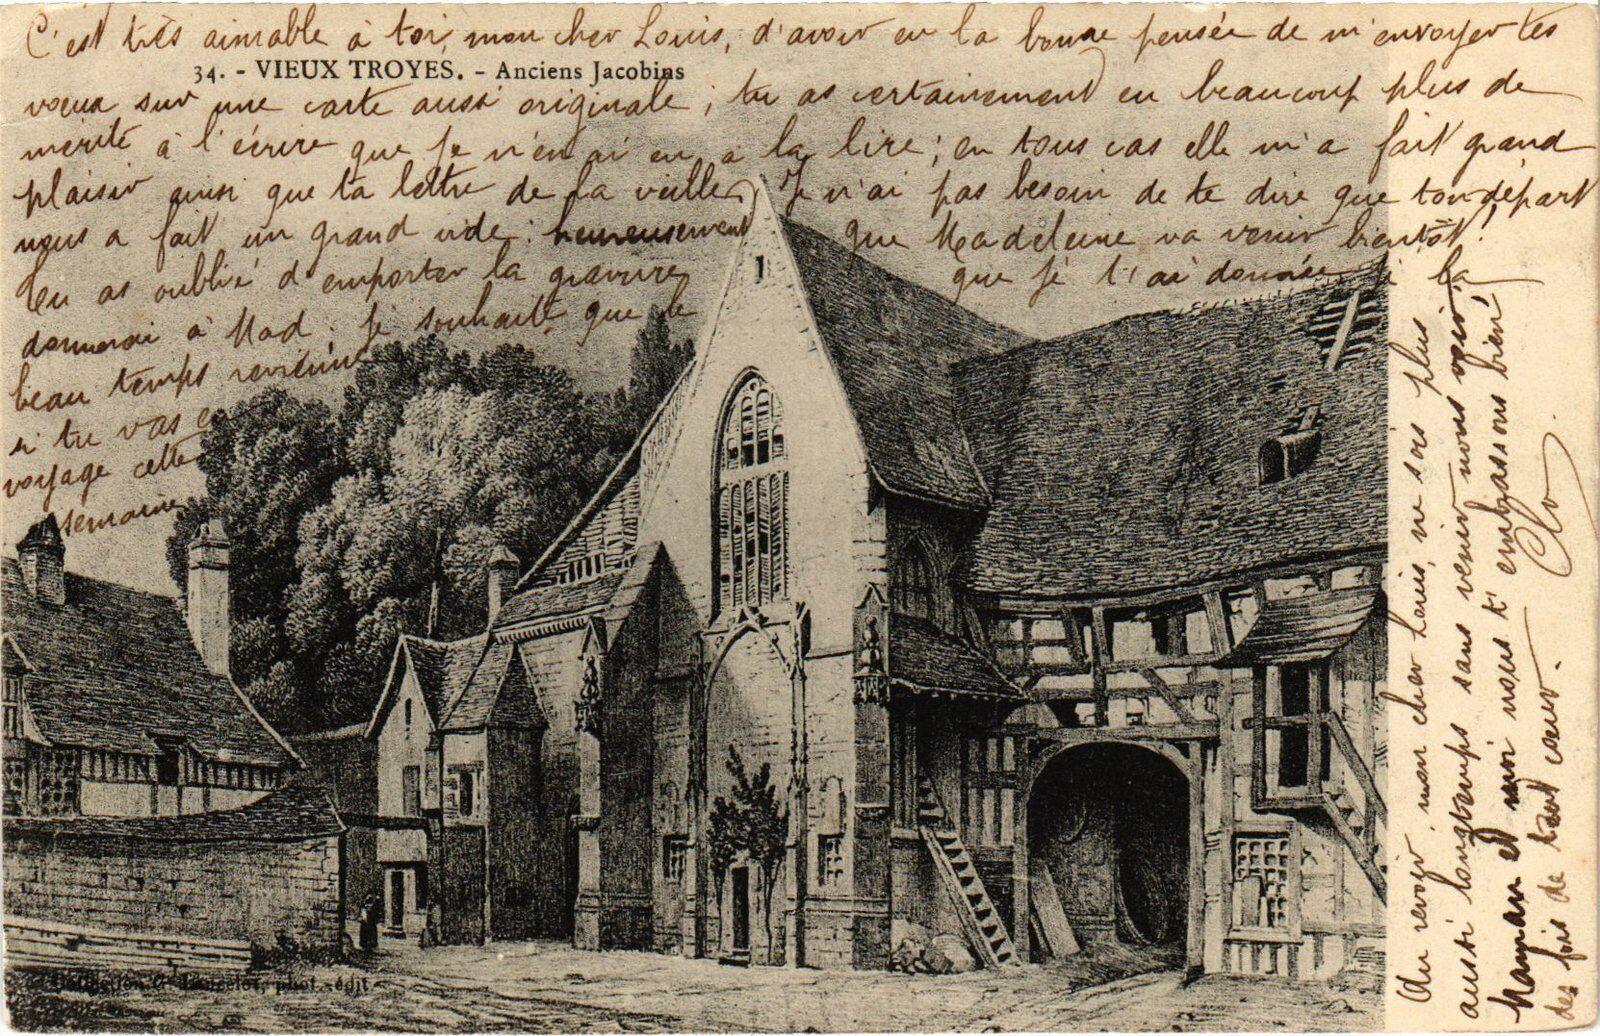 C'est très aimable à toi, mon cher Louis, d'avoir eu la bonne pensée de m'envoyer tes
34. - VIEUX TROYES. - Anciens Jacobins
vœux sur une carte aussi originale ; tu as certainement eu beaucoup plus de
mérite à l'écrire que je n'en ai eu à la lire ; en tous cas elle m'a fait grand
plaisir ainsi que ta lettre de la veille. Je n'ai pas besoin de te dire que ton départ
nous a fait un grand vide : heureusement que Madeleine va venir bientôt !
Tu as oublié d'emporter la gravure que je t'ai donnée je la
donnerai à Mad. Je souhaite que le
beau temps revienne
si tu vas en
voyage cette
semaine
Au revoir, mon cher Louis, ne sois plus
aussi longtemps sans venir nous voir,
Maman et moi nous t'embrassons bien
des fois de tout cœur.
Clo
Collection G. Lancelot, phot.-édit